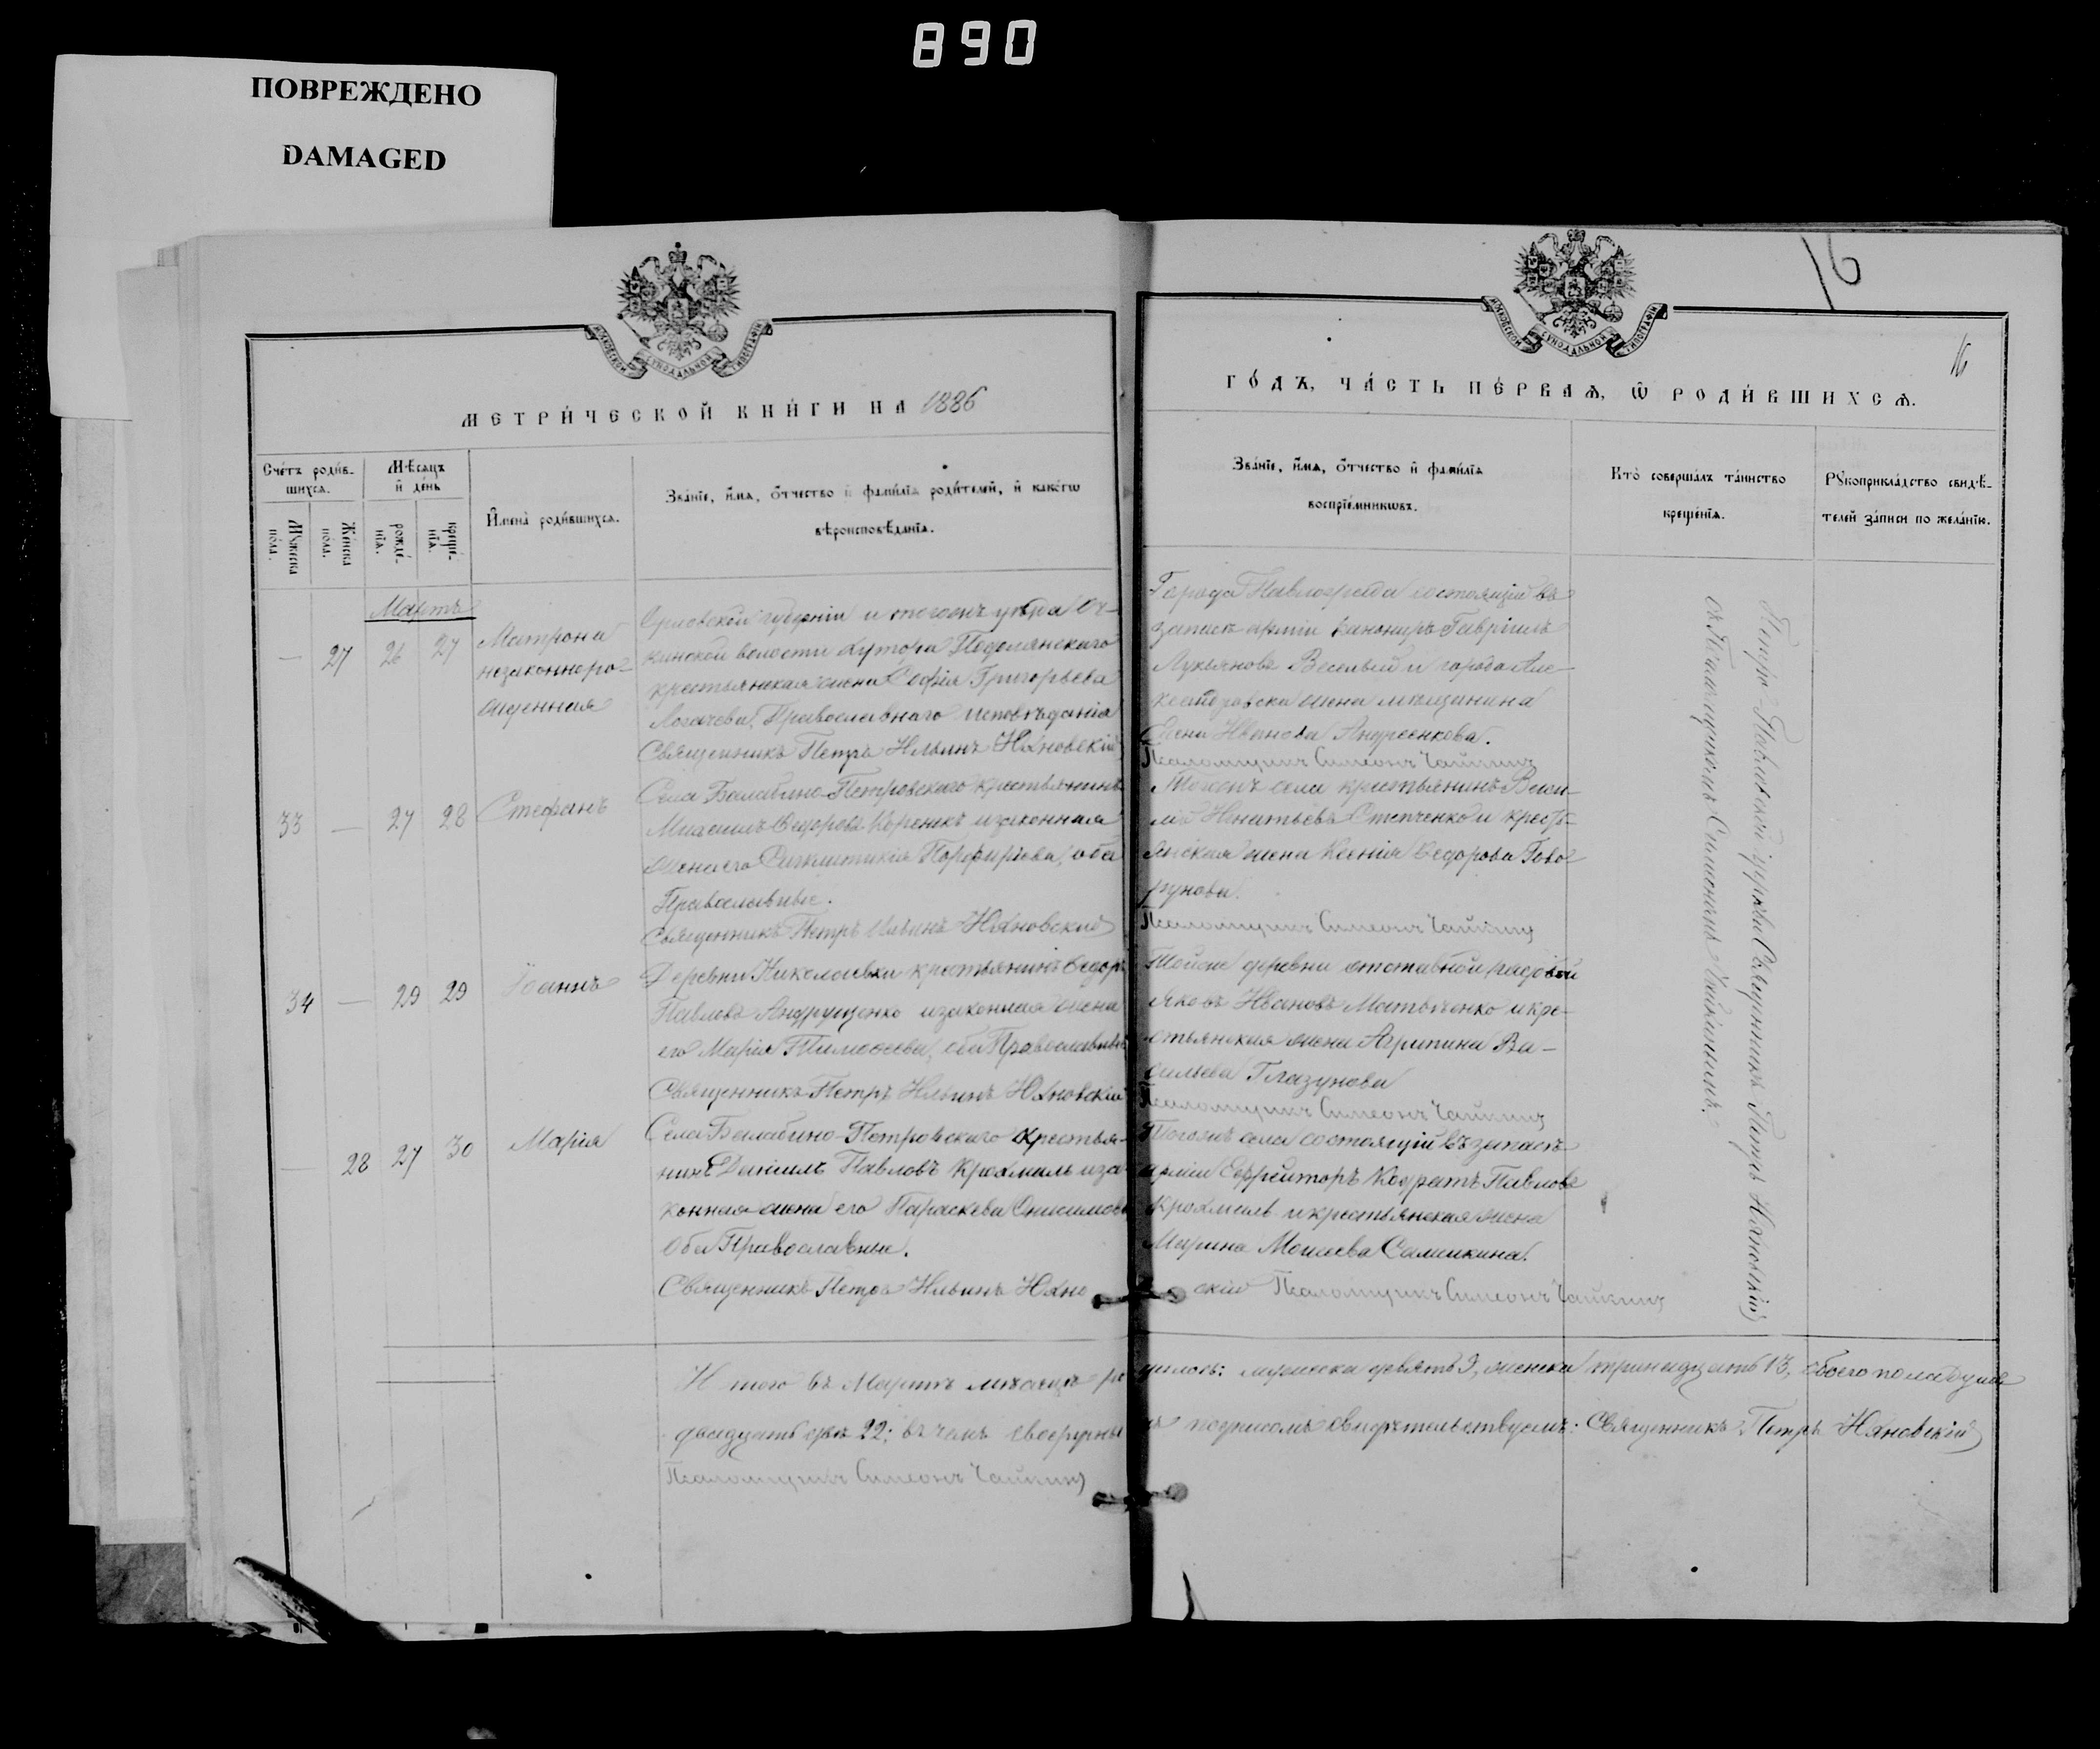 890
ПОВРЕЖДЕНО
DAMAGED
16
16
МЕТРИ́ЧЕСКОЙ КНИ́ГИ НА 1886
ГО́ДЪ, ЧА́СТЬ ПЕ́РВАѦ, Ѡ РОДИ́ВШИХСѦ.
Сче́тъ роди́в-
шихсѧ.
Мꙋ́жеска по́ла.
Же́нска по́ла.
Мѣ́сѧцъ и де́нь
рожде́нїѧ.
креще́нїѧ.
Имена̀ роди́вшихсѧ.
Зва́нїе, и́мѧ, о́тчество и фами́лїѧ роди́телей, и како́гѡ
вѣроисповѣ́данїѧ.
Зва́нїе, и́мѧ, о́тчество и фами́лїѧ
воспрїе́мникѡвъ.
Кто̀ соверша́лъ та́инство
креще́нїѧ.
Рꙋкоприкла́дство свидѣ́-
телей за́писи по жела́нїю.
Мартъ
— 27 26 27
Матрона
незаконноро-
жденная
Орловской губерніи и тогожъ уѣзда
волости хутора Подолянскаго
крестьянская жена Софія Григорьева
Логачева, Православнаго исповѣданія
Священникъ Петръ Ильинъ Юхновскій
Города Павлограда состоящій въ
запасѣ арміи канониръ Гавріилъ
Лукьяновъ Веселый и города Але-
ксандровска жена мѣщанина
Елена Иванова Андреенкова.
Псаломщикъ Симеонъ Чайкинъ
33 — 27 28 Стефанъ
Села Балабино-Петровскаго крестьянинъ
Михаилъ Ѳедоровъ и законная
жена его Синклитикія Порфирьева, оба
Православные.
Священникъ Петръ Ильинъ Юхновскій
Тогожъ села крестьянинъ Васи-
лій Игнатьевъ Степченко и крест-
янская жена Ксенія Ѳедорова Гово-
рунова.
Псаломщикъ Симеонъ Чайкинъ
34 — 29 29 Іоаннъ
Деревни Николаевки крестьянинъ Ѳедоръ
Павловъ Андрущенко и законная жена
его Марія Тимоѳеева, оба Православные
Священникъ Петръ Ильинъ Юхновскій
Тойже деревни отставной рядовой
Яковъ Ивановъ и кре-
стьянская жена Агрипина Ва-
сильева Глазунова
Псаломщикъ Симеонъ Чайкинъ
— 28 27 30 Марія
Села Балабино-Петровскаго крестья-
нинъ Даніилъ Павловъ Крохмаль и за-
конная жена его Параскева Онисимова
Оба Православные.
Священникъ Петръ Ильинъ Юхно скій Псаломщикъ Симеонъ Чайкинъ
Тогожъ села состоящій въ запасѣ
арміи Ефрейторъ Кодратъ Павловъ
Крохмаль и крестьянская жена
Марина Моисеева Самикина.
Петро-Павловской церкви Священникъ Петръ Юхновскій
съ Псаломщикомъ Симеономъ Чайкинымъ.
Итого въ Мартѣ мѣсяцѣ родилось: мужеска девять 9, женска тринадцать 13, обоего пола душъ
двадцать двѣ 22; въ чемъ своеручным подписомъ свидѣтельствуемъ: Священникъ Петръ Юхновскій
Псаломщикъ Симеонъ Чайкинъ